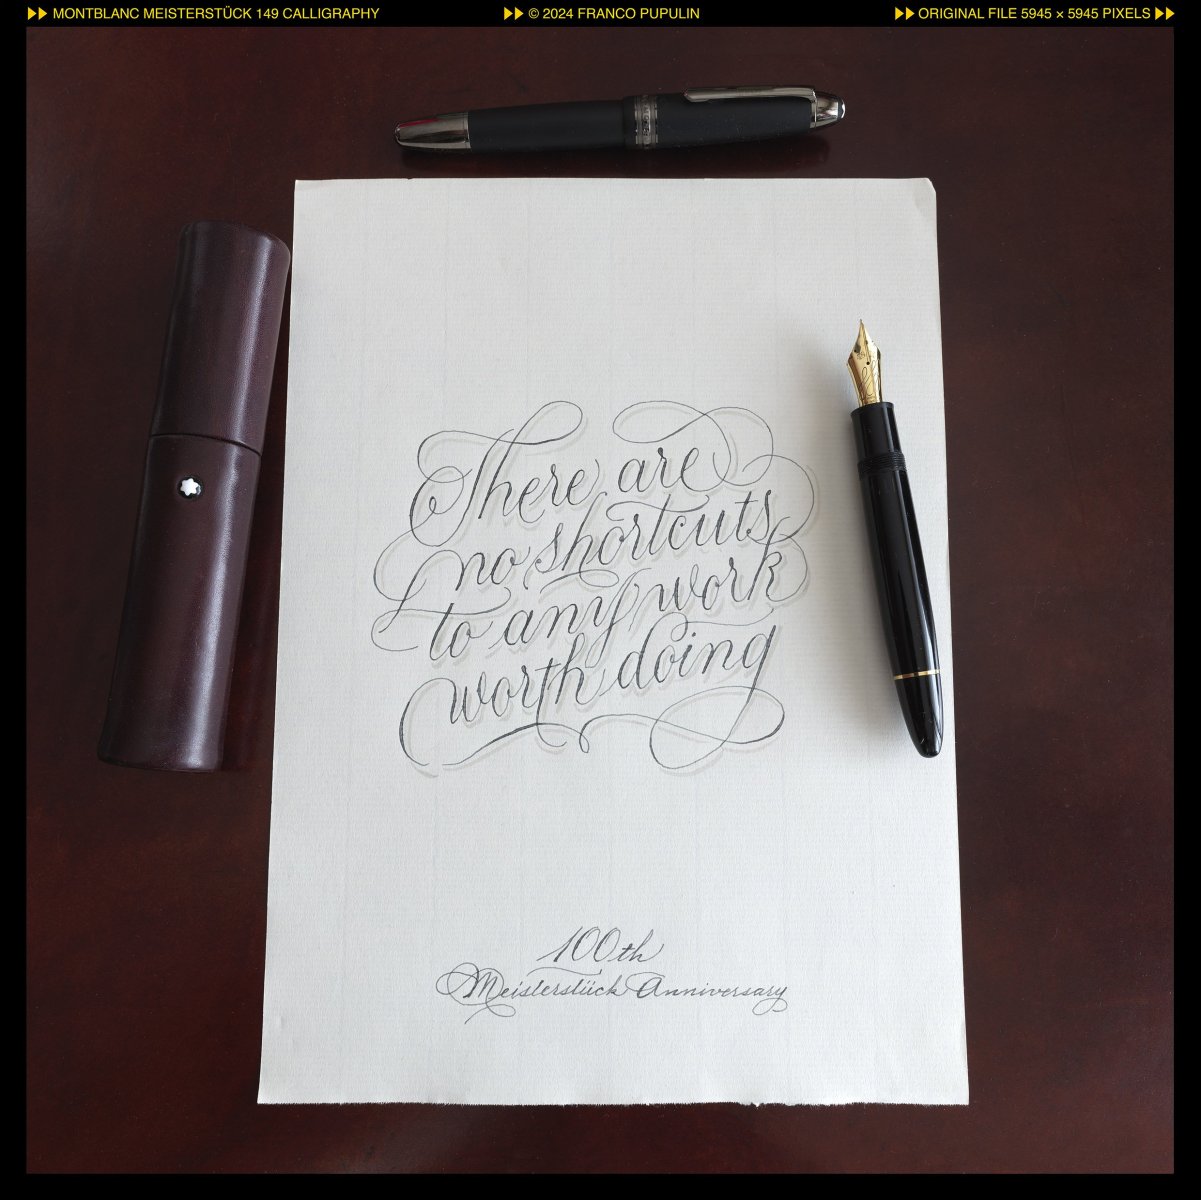 MONTBLANC MEISTERSTÜCK 149 CALLIGRAPHY
© 2024 FRANCO PUPULIN
ORIGINAL FILE 5945 × 5945 PIXELS
There are
no shortcuts
to any work
worth doing
100th
Meisterstück Anniversary